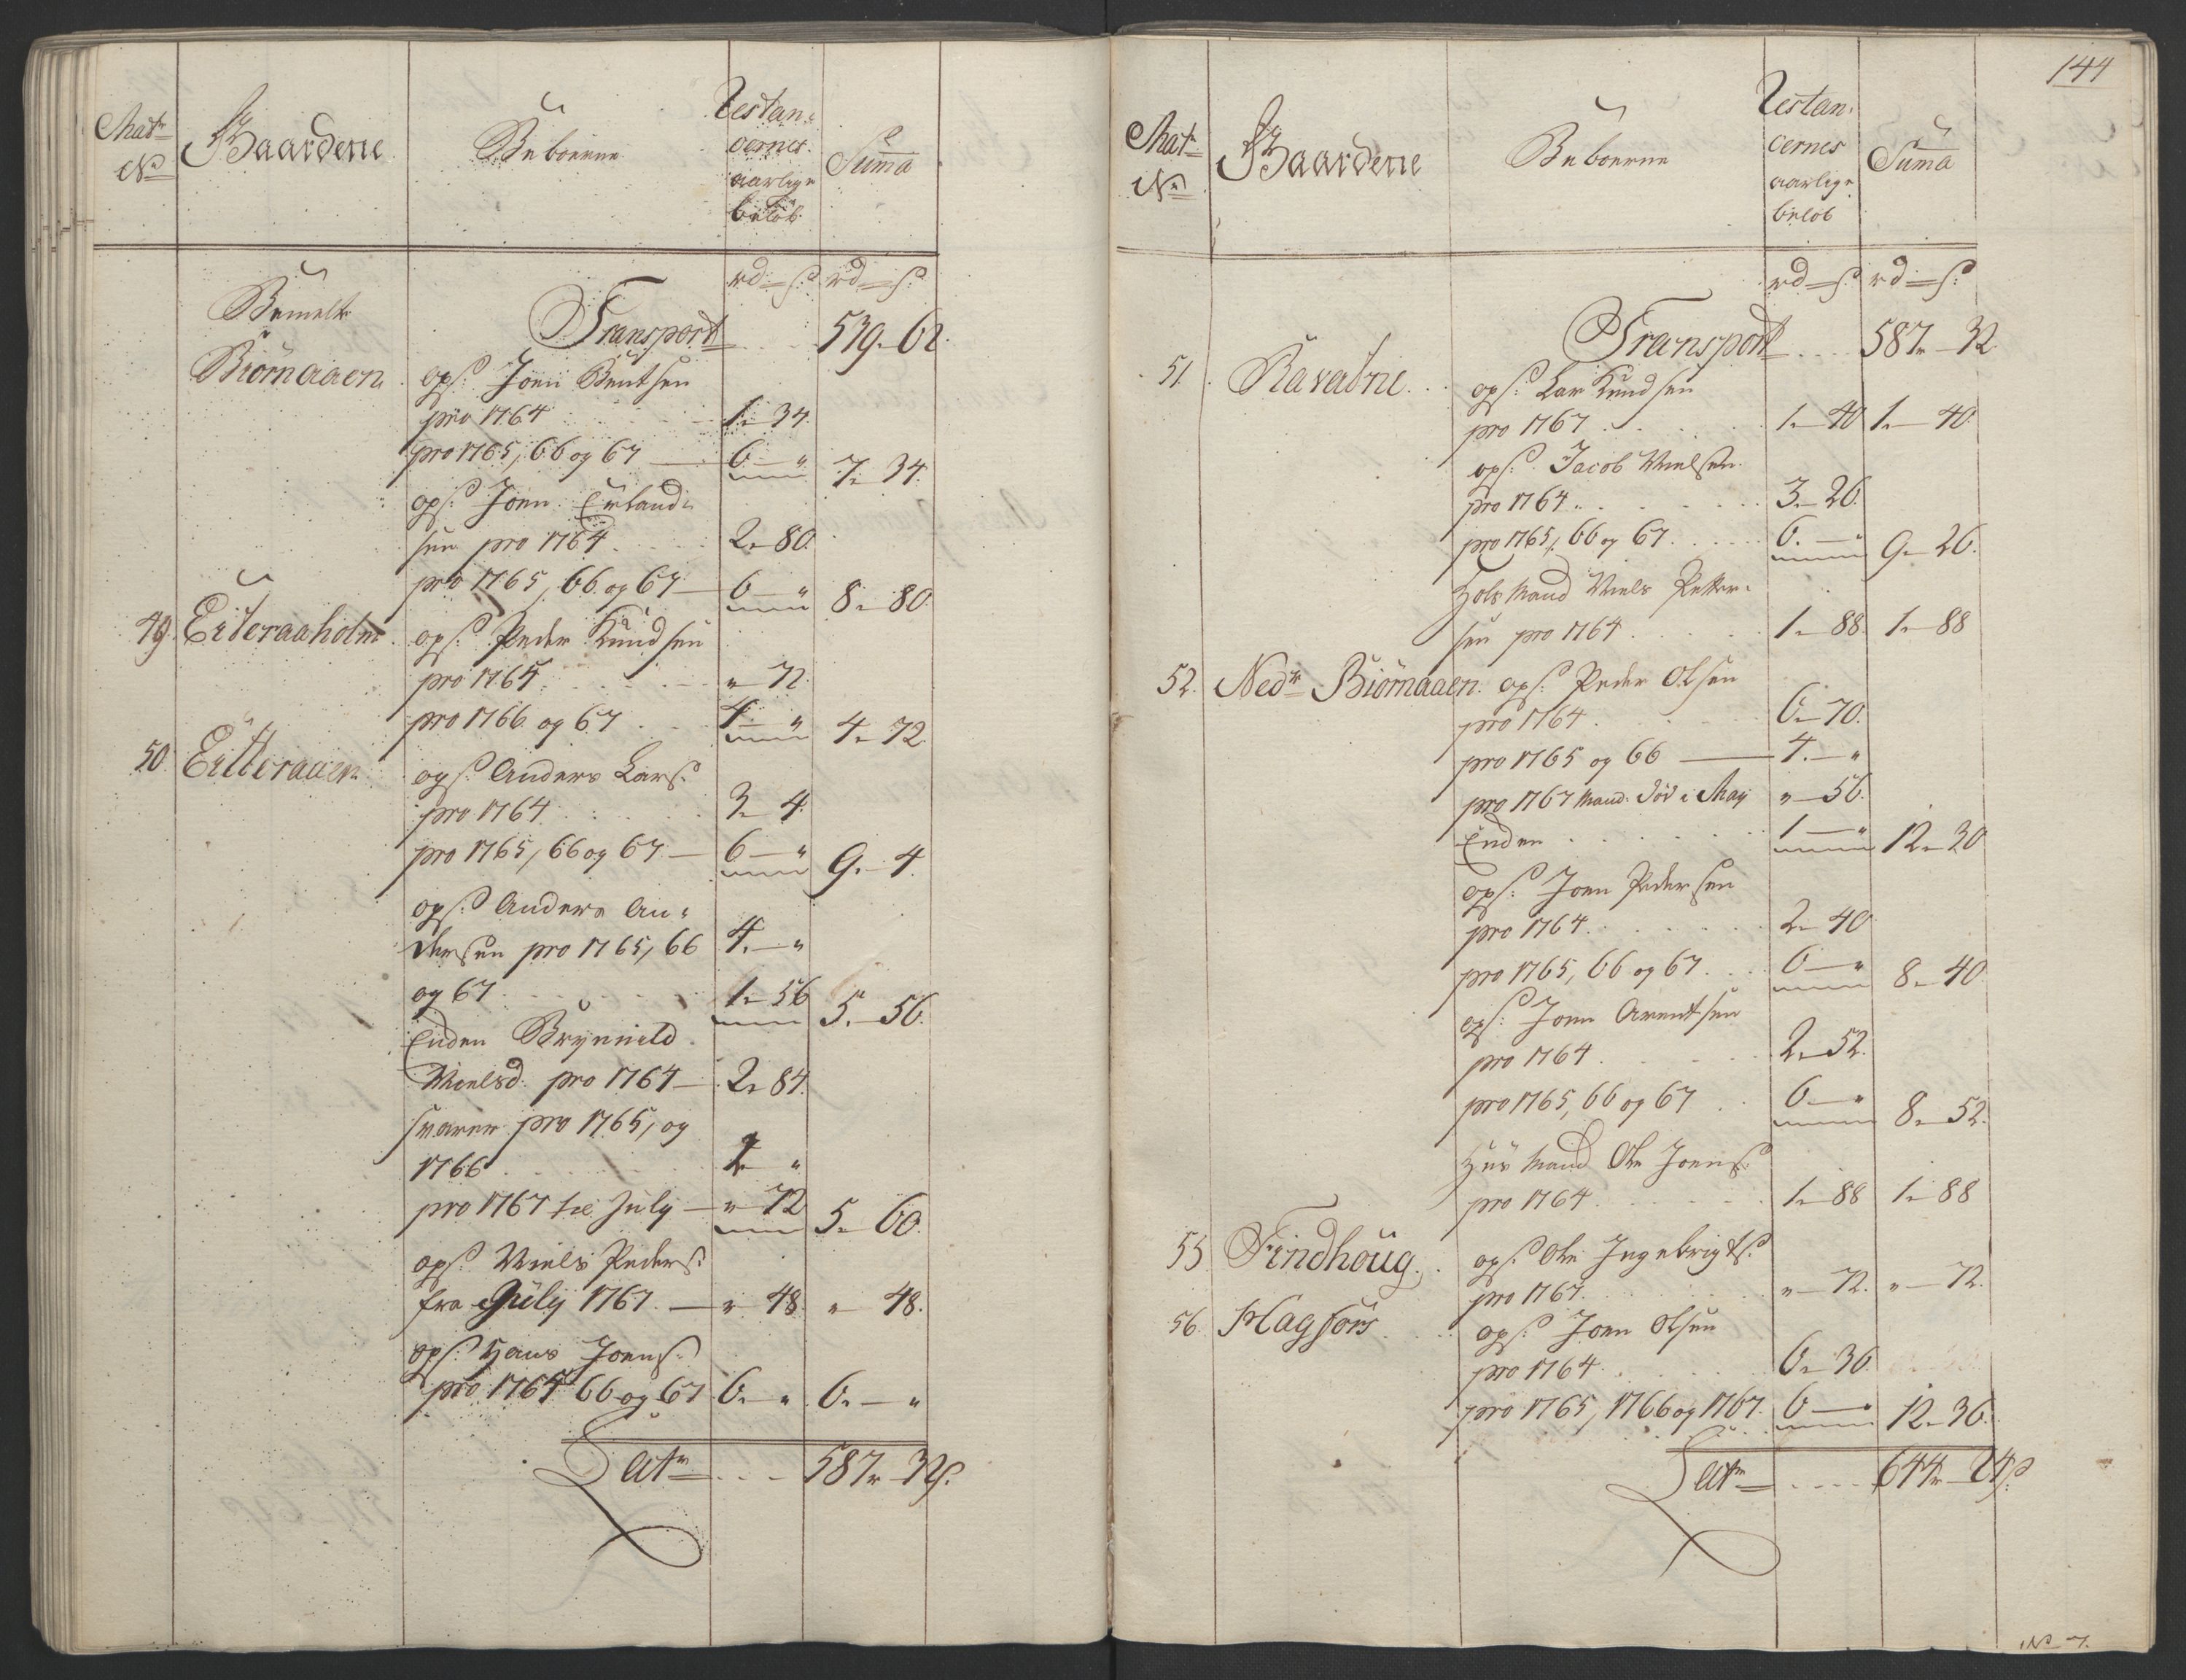 Matr No Gaardene Beboerne Restan- Suma
cernes
aarlige
beløb
rd s: rd s:
Bemelte Transport - - 539 - 62.
Biörnaaen ops: Joen Bentsen
pro 1764 . . . 1 - 34.
pro 1765, 66 og 67 — 6 — " 7 - 34.
ops: Joen Erland-
sen pro 1764 . . 2 - 80.
pro 1765, 66 og 67 — 6 — " 8 - 80.
49. Eiteraaholm ops: Peder Knudsen
pro 1765 . . . " - 72.
pro 1766 og 67 . . 4 — " 4 - 72.
50. Eitteraaen ops: Anders Lars:
pro 1764 . . . 3 - 4.
pro 1765, 66 og 67 — 6 — " 9 - 4.
ops: Anders An-
dersen pro 1765, 66 4. — "
og 67 . . . 1 - 56 5 - 56.
Enken Brynnild
Nielsd: pro 1764 — 2 - 84.
svarer pro 1765, og
1766 . . . 2 "
pro 1767 til July — " - 72 5 - 60.
ops: Niels Peders:
fra July 1767. — " - 48. " - 48.
ops: Hans Joens:
pro 1765 66 og 67 6. - " 6. — "
Latr - - - 587 - 32s.
144
Matr No Gaardene Beboerne Restan- Suma
cernes
aarlige
beløb
rd s: rd s:
Transport . . . 587 - 32
51. Ravatne . . ops: Lar Knudsen
pro 1767 . . . 1 - 40 1 - 40.
ops: Jacob Nielsen
pro 1764 . . . 3 - 26.
pro 1765, 66 og 67 . . 6. — " 9 - 26.
Hols Mand Niels Petter-
sen pro 1764 . . . 1 - 88. 1 - 88
52. Nedr Biörnaaen. ops: Peder Olsen
pro 1764 . . . 6 - 70.
pro 1765 og 66 — 4. — "
pro 1767 Mand: död i May " - 56.
Enken . . . 1 — " 12 - 30
ops: Joen Pedersen
pro 1764 . . . 2 - 40
pro 1765, 66 og 67 . . 6 — " 8 - 40
ops: Joen Arentsen
pro 1764 . . . 2 - 52.
pro 1765, 66 og 67 . . 6 — " 8 - 52.
Huus Mand Ole Joens:
pro 1764 . . . 1 - 88 1 - 88
55. Findhoug . . ops: Ole Ingebrigts:
pro 1767 . . . " - 72. " - 72.
56. Hagfors . . ops: Joen Olsen
pro 1764 . . . 6 - 36.
pro 1765, 1766 og 1767. 6 — " 12 - 36.
Latr - - - 644 - 24s
No 7.